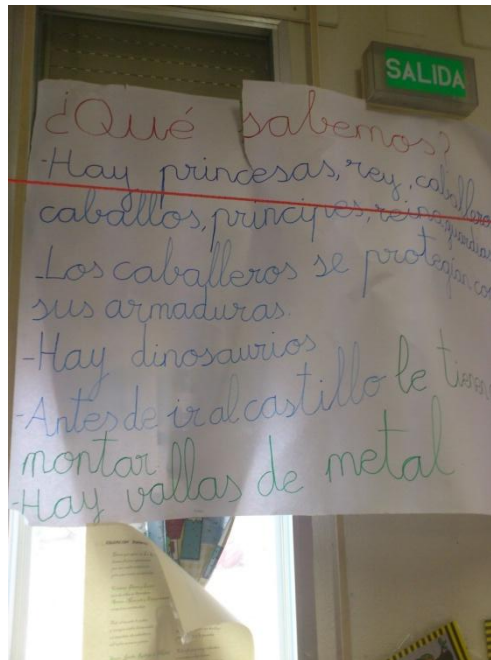 SALIDA
¿Qué sabemos?
-Hay princesas, rey, caballeros
caballos, príncipes, reina, guardias
-Los caballeros se protegían con
sus armaduras.
-Hay dinosaurios
-Antes de ir al castillo le tienen
montar
-Hay vallas de metal